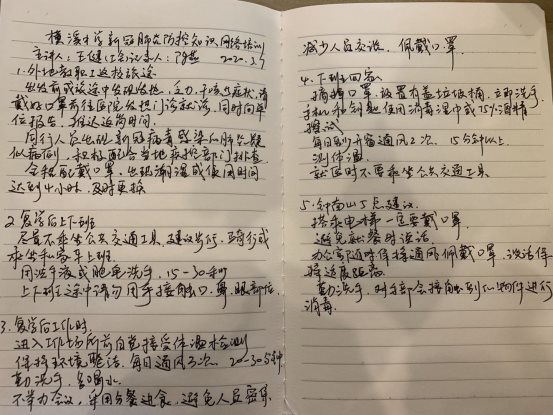 横溪中学新冠肺炎防控知识网络培训
主讲人：王健 会议记录人：陈燕 2020.3.7
1.外地教职工返校旅途
出发前或旅途中发现发热、乏力、干咳等症状，请
戴好口罩前往医院发热门诊就诊，同时向单
位报告，推迟返岗时间。
同行人员出现新冠病毒感染及肺炎疑
似病例，积极配合当地疾控部门排查
全程配戴口罩，出现潮湿或使用时间
达到4小时，及时更换
2.复学后上下班
尽量不乘坐公共交通工具，建议步行、骑行或
乘坐私家车上班
用洗手液或肥皂洗手，15-30秒
上下班途中请勿用手接触口、鼻、眼部位
3.复学后工作时
进入工作场所前自觉接受体温检测
保持环境整洁，每日通风3次，20-30分钟
勤洗手，多喝水
不举办会议，采用分餐进食，避免人员密集
减少人员交谈，佩戴口罩
4.下班回家
摘掉口罩，放置有盖垃圾桶，立即洗手
手机和钥匙使用消毒湿巾或75%酒精
擦拭
每日至少开窗通风2次，15分钟以上
测体温
就医时不要乘坐公共交通工具
5.钟南山5点建议
搭乘电梯一定要戴口罩
避免就餐时说话
办公室近时保持通风佩戴口罩，说话保
持适度距离
勤洗手，对手部会接触到的物件进行
消毒